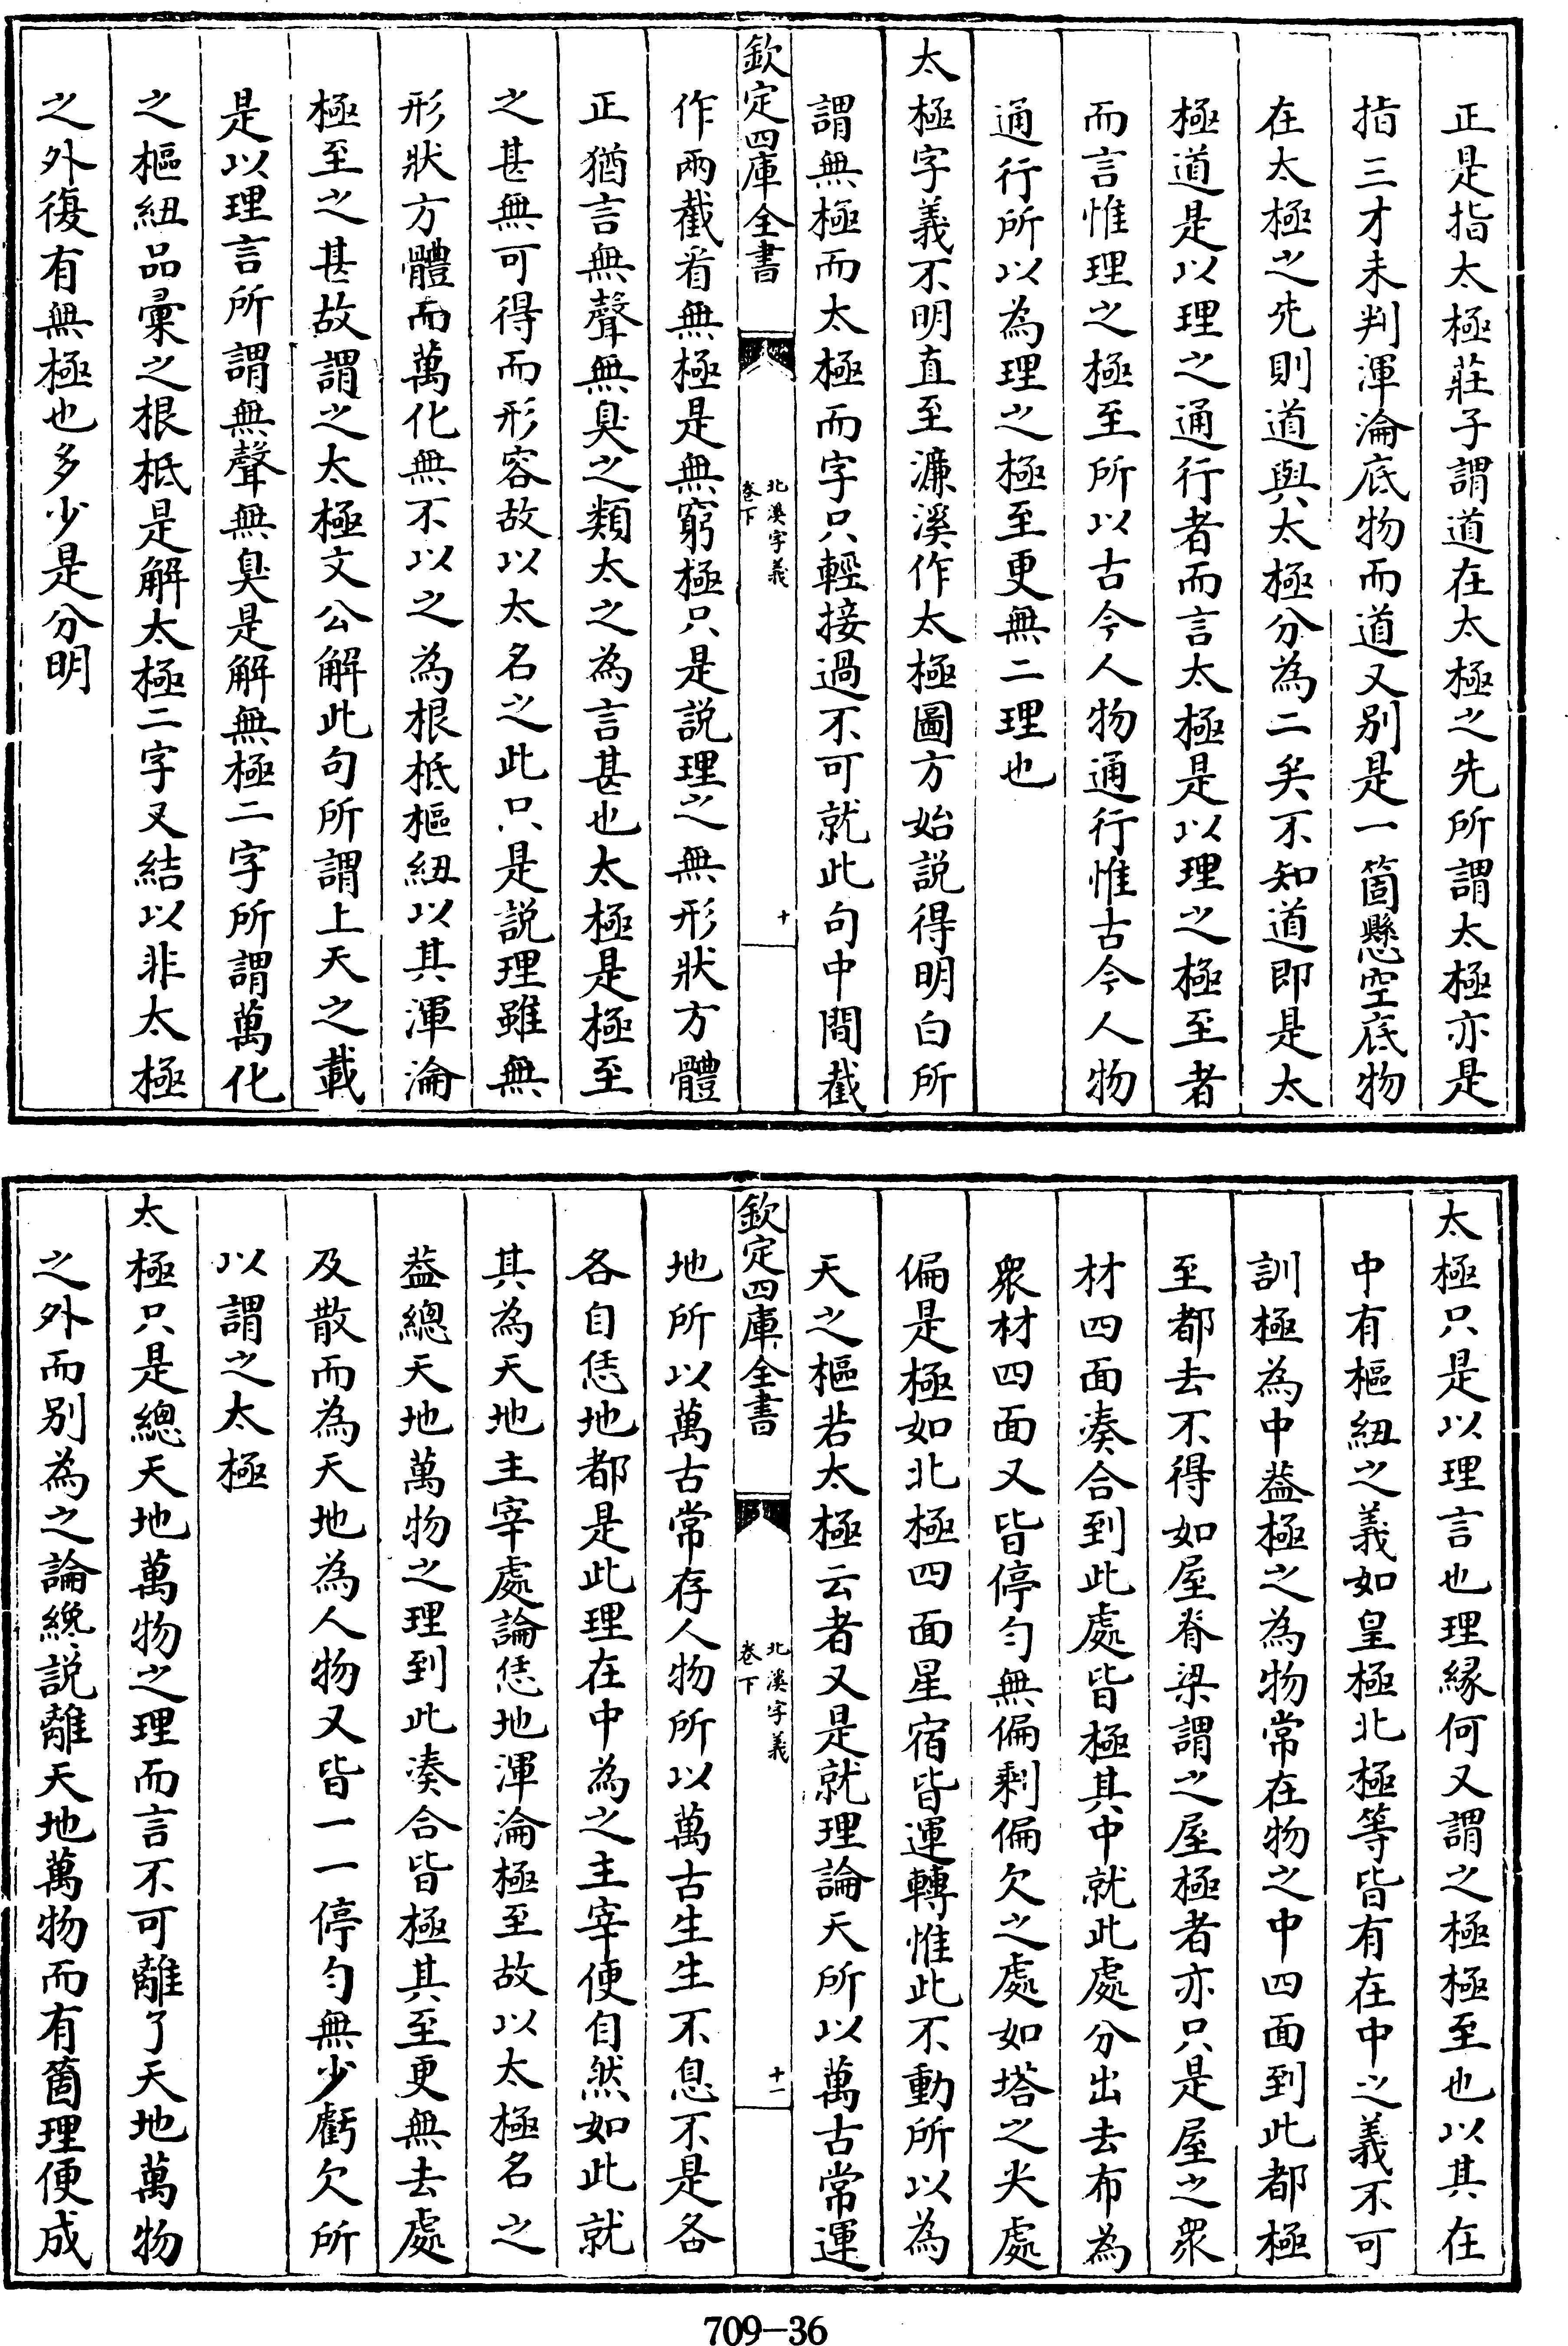 正是指太極莊子謂道在太極之先所謂太極亦是
指三才未判渾淪底物而道又别是一箇懸空底物
在太極之先則道與太極分為二矣不知道即是太
極道是以理之通行者而言太極是以理之極至者
而言惟理之極至所以古今人物通行惟古今人物
通行所以為理之極至更無二理也
太極字義不明直至濂溪作太極圖方始説得明白所
謂無極而太極而字只輕接過不可就此句中間截
欽定四庫全書
北溪字義
卷下
十
作兩截看無極是無窮極只是説理之無形狀方體
正猶言無聲無臭之類太之為言甚也太極是極至
之甚無可得而形容故以太名之此只是説理雖無
形狀方體而萬化無不以之為根柢樞紐以其渾淪
極至之甚故謂之太極文公解此句所謂上天之載
是以理言所謂無聲無臭是解無極二字所謂萬化
之樞紐品彙之根柢是解太極二字又結以非太極
之外復有無極也多少是分明
太極只是以理言也理緣何又謂之極極至也以其在
中有樞紐之義如皇極北極等皆有在中之義不可
訓極為中葢極之為物常在物之中四面到此都極
至都去不得如屋脊梁謂之屋極者亦只是屋之衆
材四面湊合到此處皆極其中就此處分出去布為
衆材四面又皆停勻無偏剩偏欠之處如塔之尖處
偏是極如北極四面星宿皆運轉惟此不動所以為
天之樞若太極云者又是就理論天所以萬古常運
欽定四庫全書
北溪字義
卷下
十一
地所以萬古常存人物所以萬古生生不息不是各
各自恁地都是此理在中為之主宰便自然如此就
其為天地主宰處論恁地渾淪極至故以太極名之
葢總天地萬物之理到此湊合皆極其至更無去處
及散而為天地為人物又皆一一停勻無少虧欠所
以謂之太極
太極只是總天地萬物之理而言不可離了天地萬物
之外而别為之論纔説離天地萬物而有箇理便成
709-36